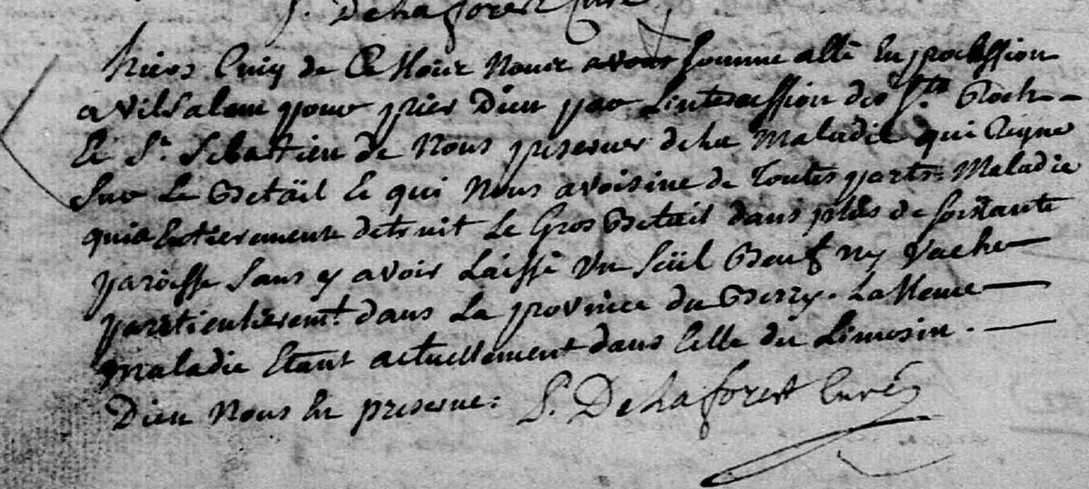 P. Delaforest Curé
hiers Cinq de Ce Mois Nous avons somme allé En procession
a Villsalem pour prier Dieu par Lintercession des Sts Roch
Et St. Sebastien de Nous preserver de la Maladie qui Reigne
Sur Le Betail Et qui Nous avoisine de Toutes parts. Maladie
qui a Entierement detruit Le Gros Betail dans plus de soixante
paroisse Sans y avoir Laissé Un Seul Boeuf ny Vache
particulierem.t dans La province du Berry. La Meme
Maladie Etant actuellement dans Celle du Limosin.
Dieu Nous En preserve. P. Delaforest Curé